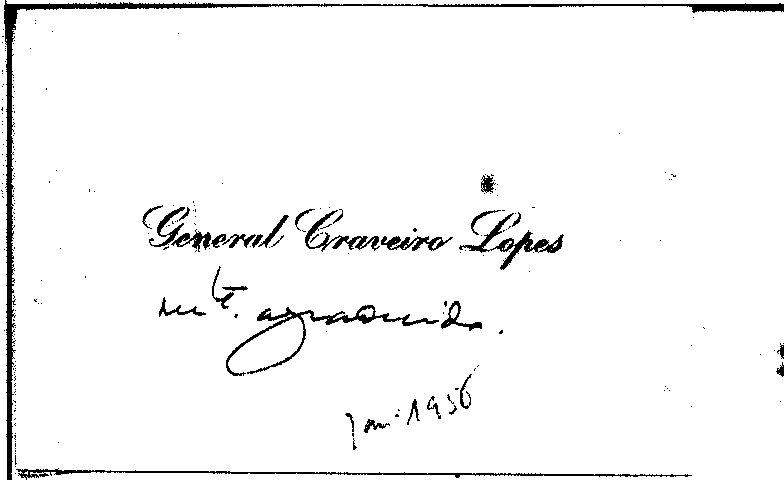 General Craveiro Lopes
mto. agradecido.
Jan. 1956